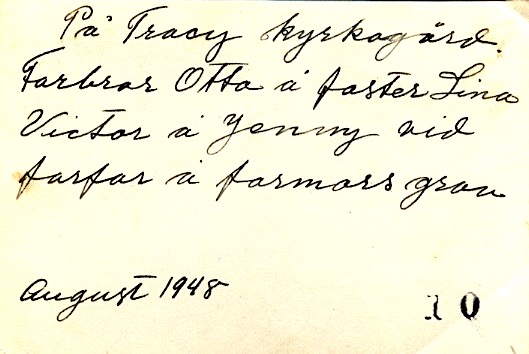 På Tracy kyrkogård.
Farbror Otto å faster Lina
Victor å Jenny vid
farfar å farmors grav
August 1948
10